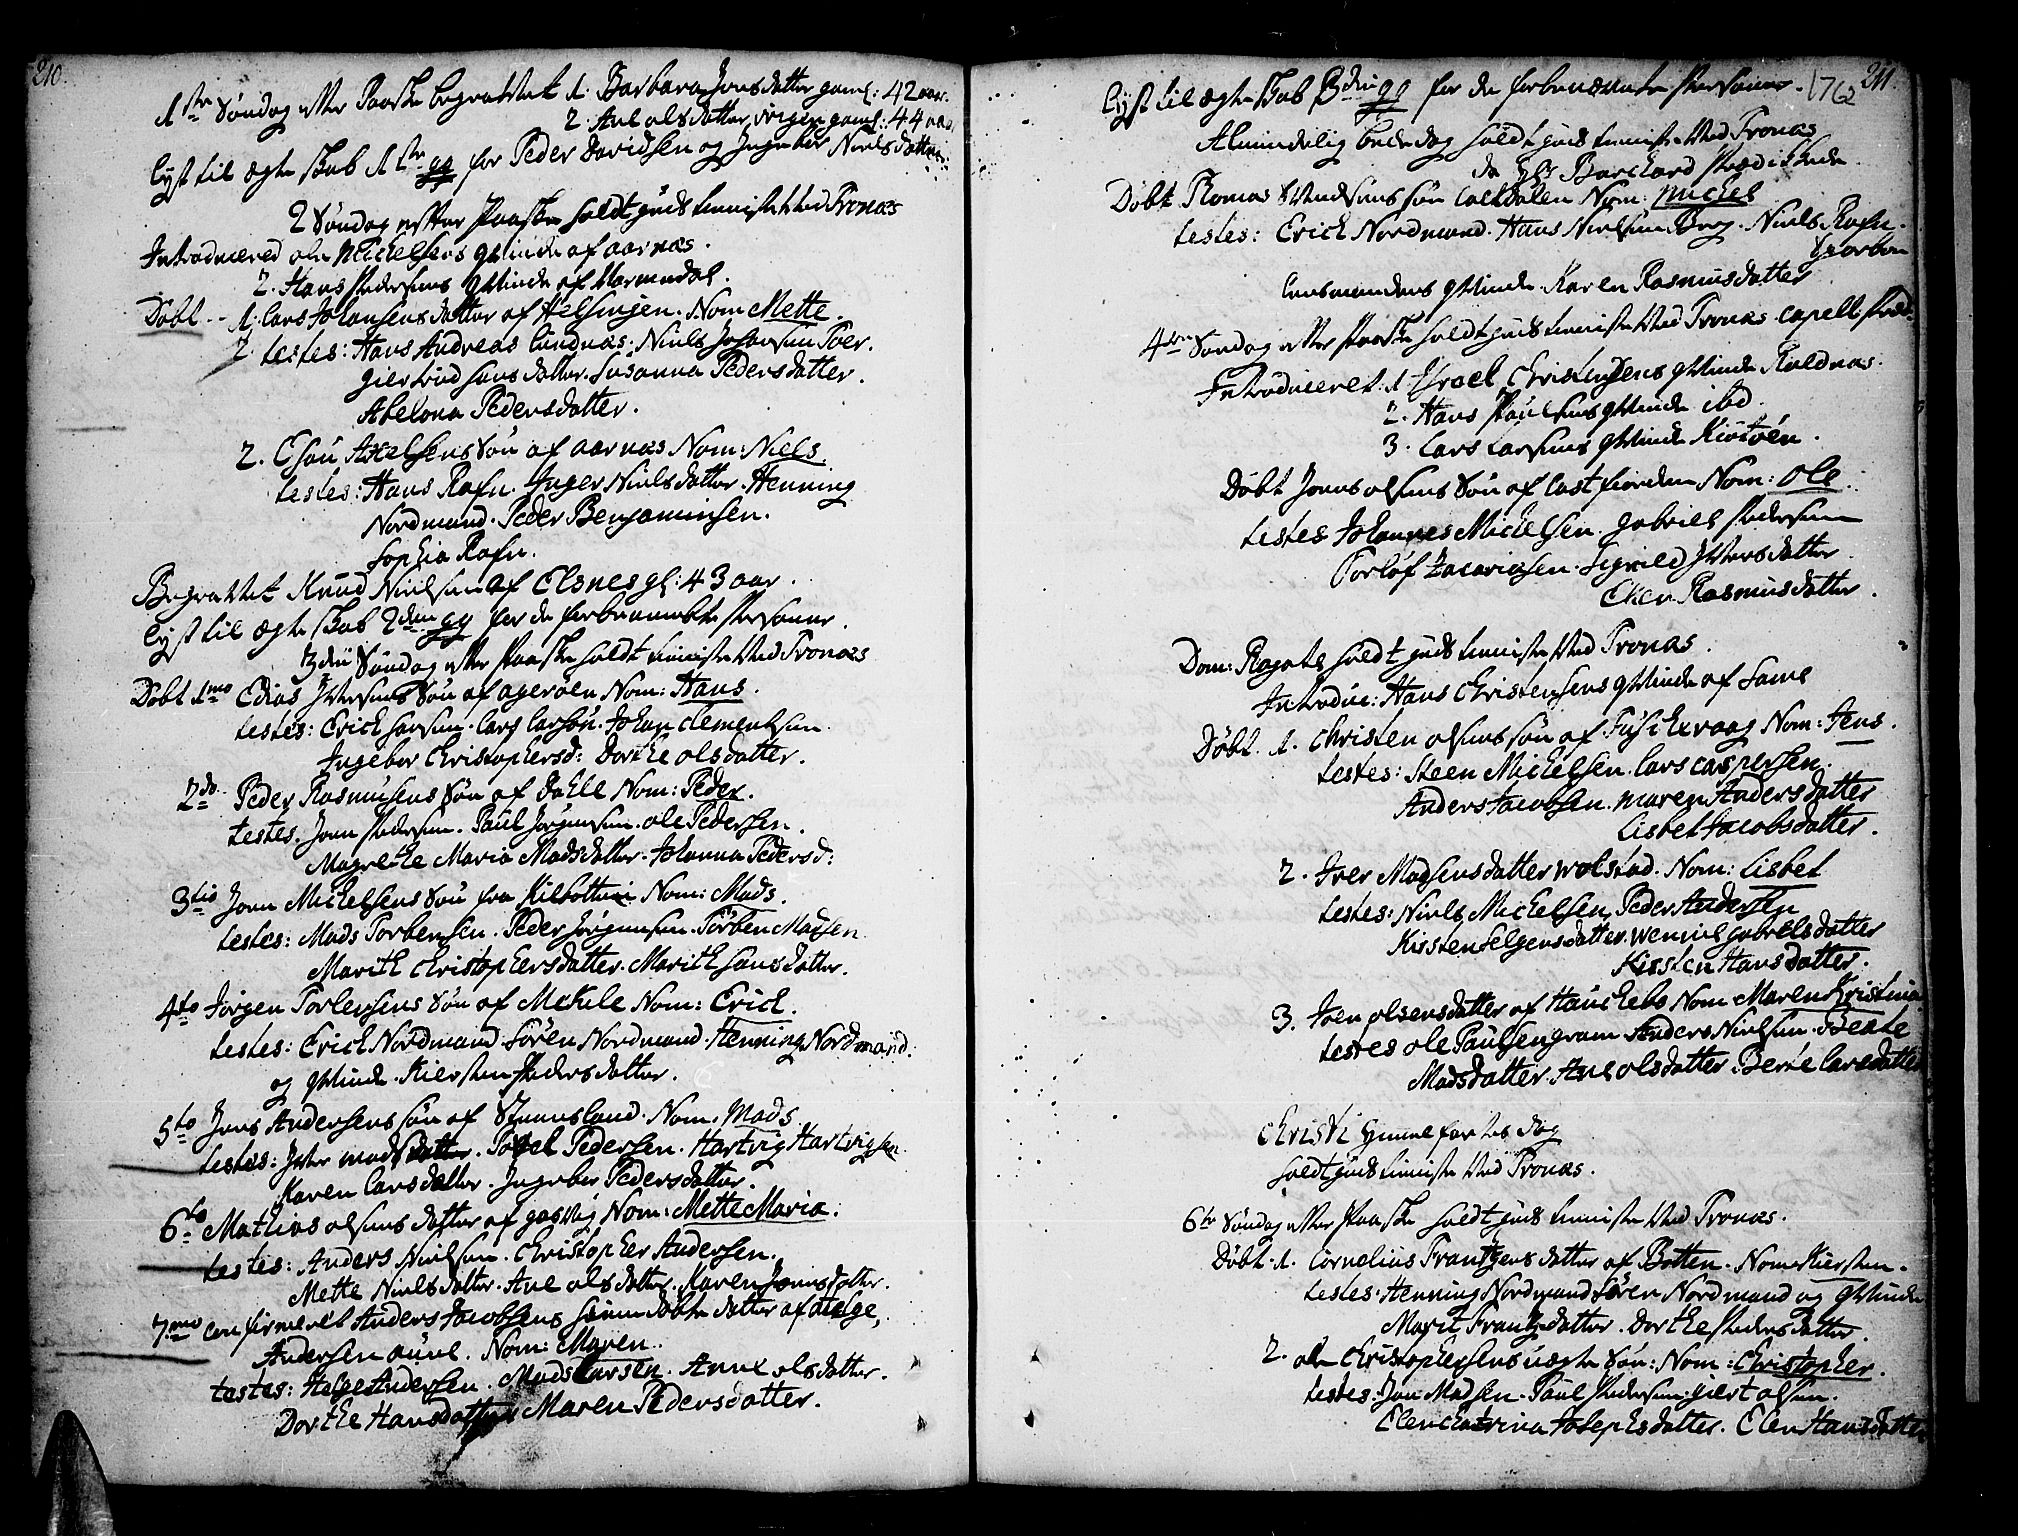 210.
1ste Søndag efter Paaske begravet 1. Barbara Jonsdatter gaml: 42 aar.
2. Ane olsdatter, gaml: 44 aar.
lyst til ægteskab 1ste gg for Peder Davidsen og Ingebor Nielsdatter
2 Søndag efter Paaske holdt gudstieniste ved Tronæs
Introduceret ole Michelsens qvinde af aarnæs.
2. Hans Pedersens qvinde af
Døbt 1. Lars Johansens datter af Helsingen. Nom: Mette.
testes: Hans Andreas Niels Johansen
giertrud hansdatter. Susanna Pedersdatter.
Abelona Pedersdatter.
2. Esau Axelsens Søn af aarnæs Nom: Niels.
testes: Hans Rafn. Inger Nielsdatter. Henning
Nordmand. Peder Benjaminsen.
Sophia Rafn.
Begravet Knud Nielsen af Elsnes gl: 43 aar.
lyst til ægteskab 2den gg for de forbenævnte Personer.
3die Søndag efter Paaske holdt tieniste ved Tronæs
Døbt 1mo Elias Iversens Søn af agerøen Nom: Hans.
testes: Erich hansen. Lars Larsøn. Johan Clementsen
Ingebor Christophersd: Dorthe olsdatter.
2do Peder Rasmusens Søn af Nom: Peder.
testes. Joen Pedersen. Paul Jørgensen. ole Pedersen.
Magrethe Maria Madsdatter. Johanna Pedersd:
3tio Joen Michelsens Søn fra Kilbotten Nom: Mads.
testes: Mads Torbensen. Peder Jørgensen. Torben Madsen
Marith Christophersdatter. Marith hansdatter.
4to Jørgen Torlensens Søn af Mekele Nom: Erich.
testes: Erich Nordmand. Sören Nordmand. Henning Nordmand.
og qvinde. Kiersten Pedersdatter.
5to Jens Andersens søn af Nom: Mads.
testes: Iver Pedersen. Hartvig Hartvigsen
Karen Larsdatter. Ingebor Pedersdatter.
6to Mathias olsens datter af gasvig Nom: Mette Maria.
testes: Anders Nielsen. Christopher Andersen.
Mette Nielsdatter. Ane olsdatter. Karen Jonsdatter.
7mo confirmeret Anders Jacobsens hiemdøbte datter af
Andersen Nom: Maren.
testes: Helge Andersen. Mads Larsen. Anne olsdatter.
Dorthe Hansdatter Maren Pedersdatter.
211.
1762
lyst til ægteskab 3die gg for de forbenævnte Personer.
Almindelig bededag holdt gudstieniste ved Tronæs
da Hr Borchard prædikede.
Døbt Thomas søn Nom: Michel
testes: Erich Nordmand. Hans Nielsen Berg. Niels Rafn.
Lensmandens qvinde. Karen Rasmusdatter
4de Søndag efter Paaske holdt gudstieniste ved Tronæs capell
Introduceret. 1. Israel Christensens qvinde Roldnæs.
2. Hans Paulsens qvinde ibd.
3. Lars Larsens qvinde Kiøtøen.
Døbt Jens olsens Søn af Nom: Ole.
testes Johannes Michelsen. gabriel Pedersen
Torlof Zacariasen. Sigrild Iversdatter.
Elen Rasmusdatter.
Dom: Rogate holdt gudstieniste ved Tronæs.
Introduc: Hans Christensens qvinde af Same
Døbt. 1. Christen olsens søn af Fuskevaag Nom: Jens.
testes: Steen Michelsen. Lars Caspersen.
Anders Jacobsen. Maren Andersdatter
Lisbet Jacobsdatter.
2. Iver Madsens datter Wolstad. Nom: Lisbet
testes: Niels Michelsen. Peder Andersen
Kirsten Helgensdatter. Wennil gabrielsdatter
Kirsten Hansdatter.
3. Joen olsens datter af Haukebo Nom Maren Kristina
testes ole Paulsen gram Anders Nielsen. Beate
Madsdatter. Ane olsdatter. Berte Larsdatter
Christi Himmelfartes dag
holdt gudstieniste ved Tronæs.
6te Søndag efter Paaske holdt gudstieniste ved Tronæs.
Døbt. 1. Cornelius Frantzens datter af Botten. Nom: Kiersten.
testes. Henning Nordmand Sören Nordmand og qvinde
Marit Frantzdatter. Dorthe Pedersdatter.
2. ole Christophersens uægte Søn: Nom: Christopher.
testes. Jon Madsen. Paul Pedersen. giert olsen.
Elen Catrina Josephsdatter. Elen Hansdatter